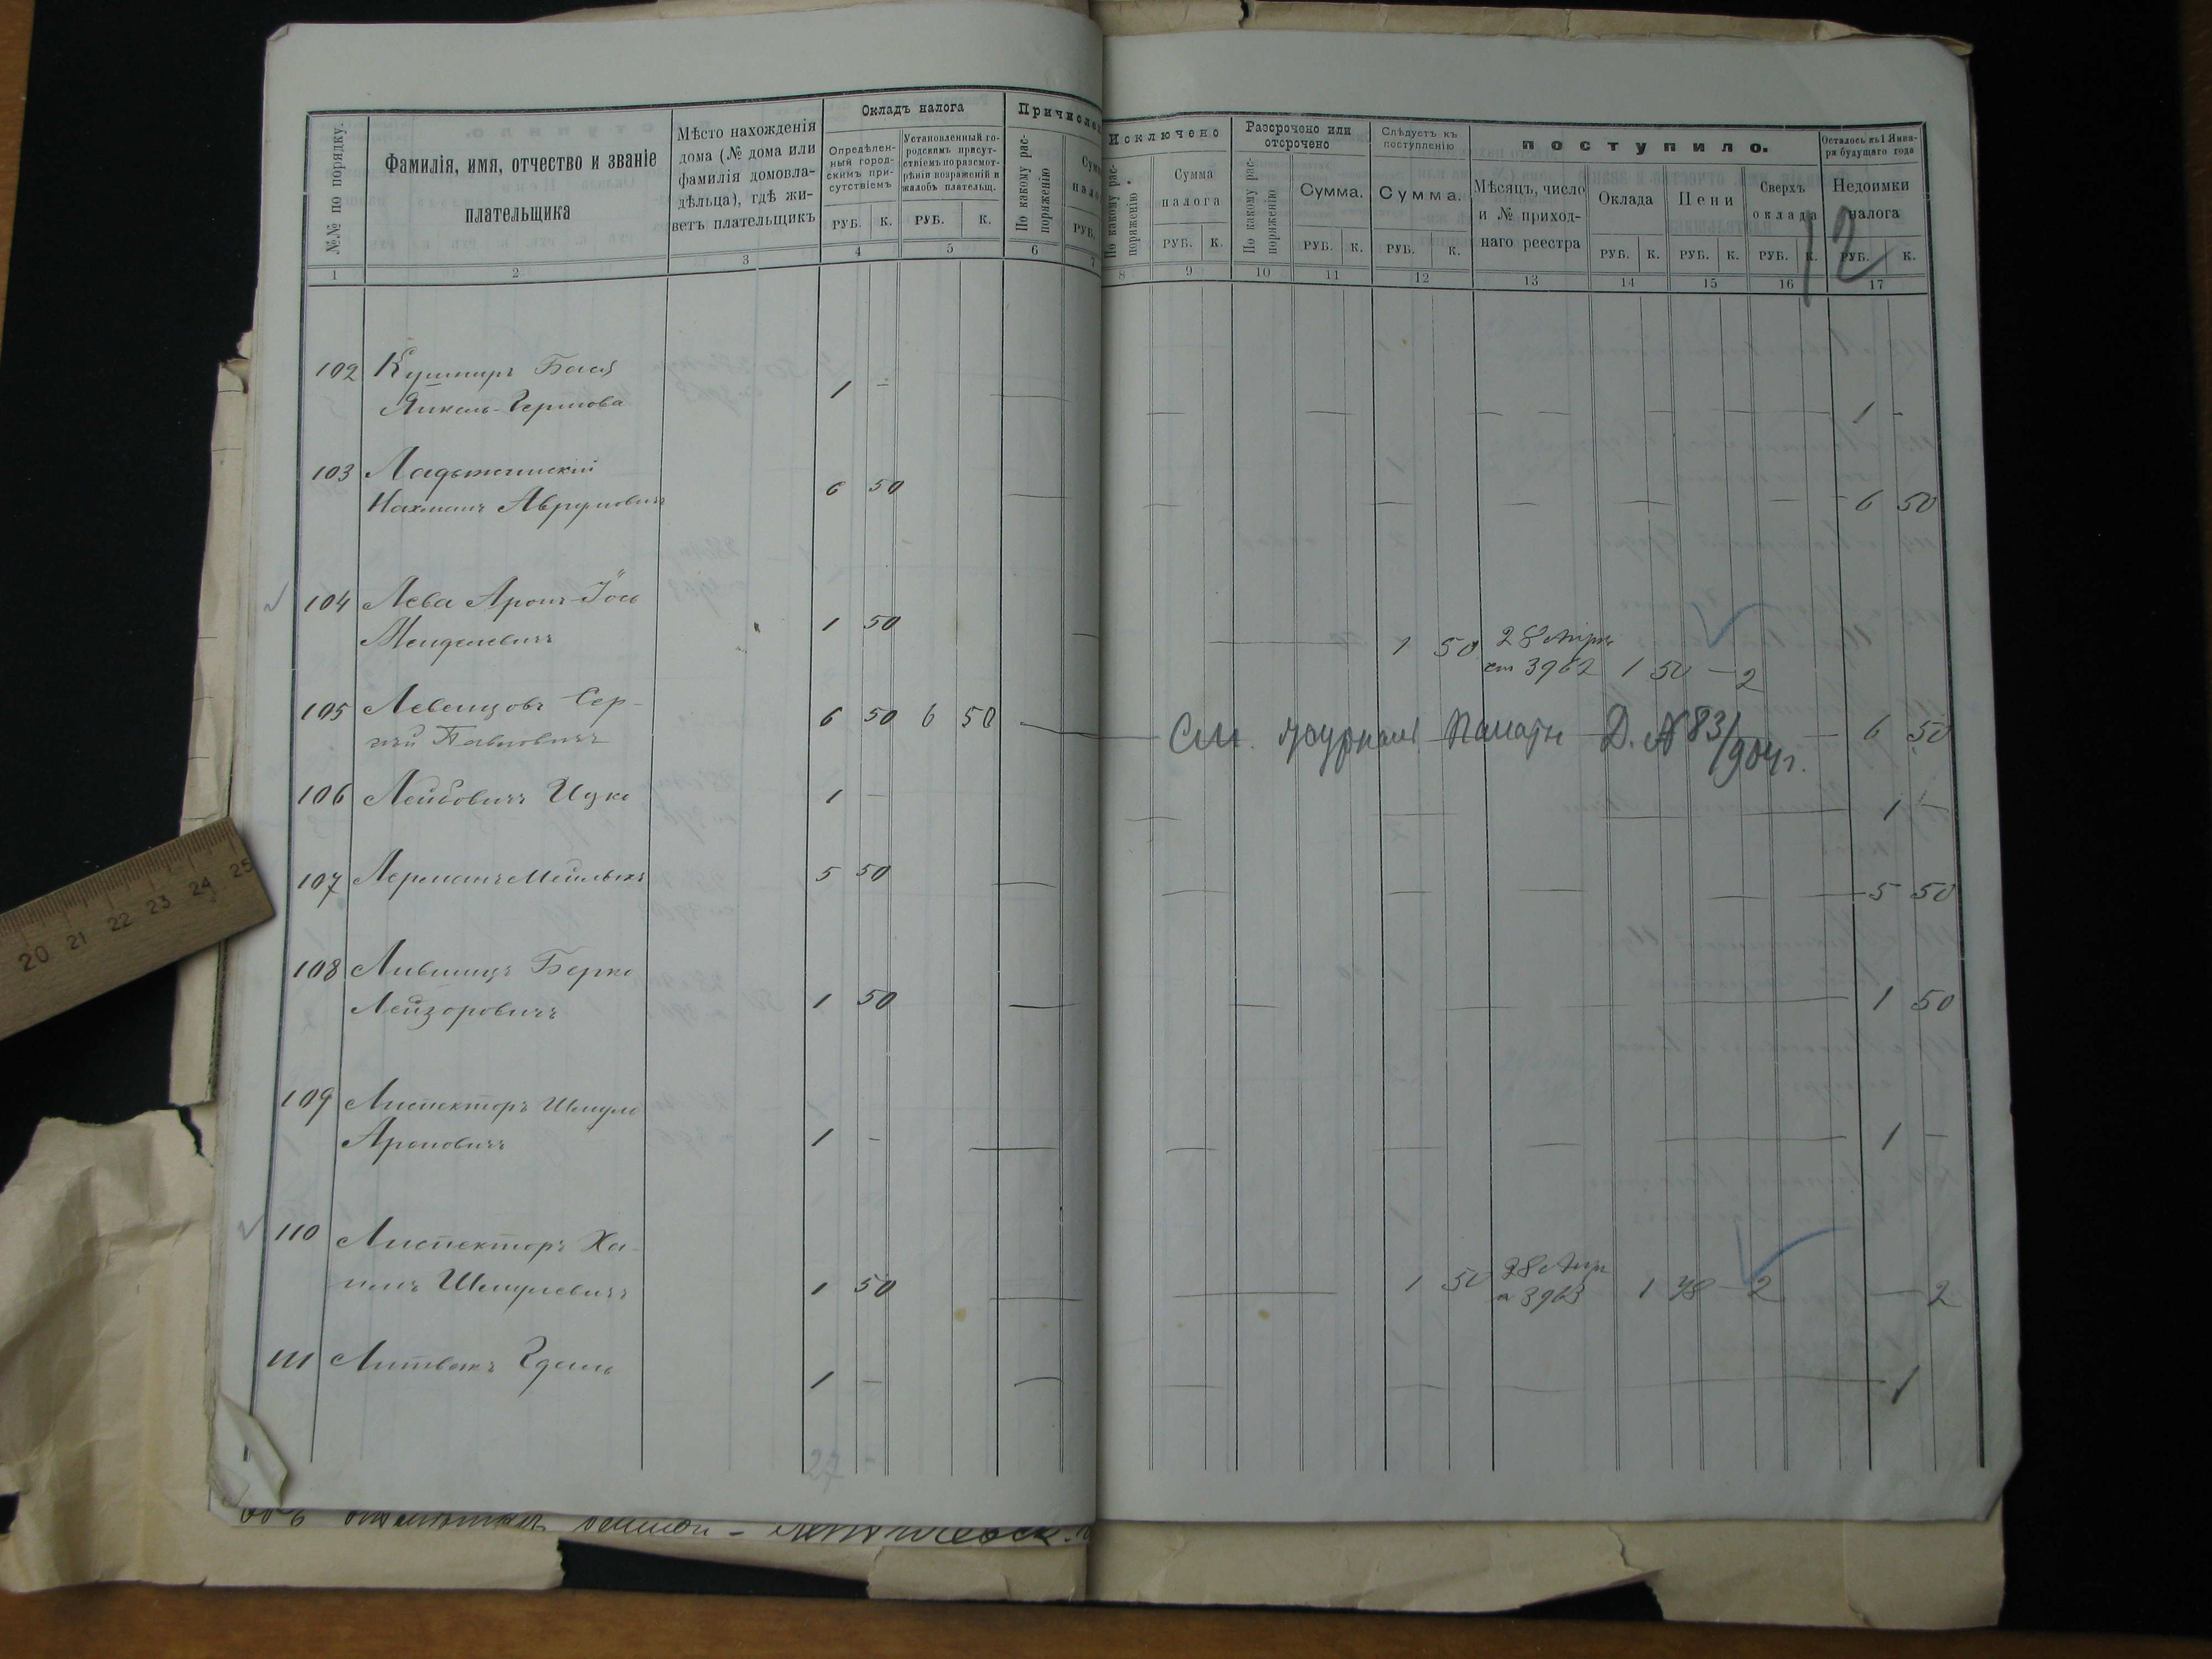 №№ по порядку.
Фамилія, имя, отчество и званіе
плательщика
Мѣсто нахожденія
дома (№ дома или
фамилія домовла-
дѣльца), гдѣ жи-
ветъ плательщикъ
Окладъ налога
Опредѣлен-
ный город-
скимъ при-
сутствіемъ
Установленный го-
родскимъ присут-
ствіемъ по разсмот-
рѣніи возраженій и
жалобъ плательщ.
РУБ. К. РУБ. К.
Причислен
По какому рас-
поряженію
Сумма
налога
РУБ.
1 2 3 4 5 6 7
Исключено
По какому рас-
поряженію
Сумма
налога
РУБ. К.
Разсрочено или
отсрочено
По какому рас-
поряженію
Сумма.
РУБ. К.
Слѣдуетъ къ
поступленію
Сумма.
РУБ. К.
поступило.
Мѣсяцъ, число
и № приход-
наго реестра
Оклада
РУБ. К.
Пени
РУБ. К.
Сверхъ
оклада
РУБ. К.
Осталось къ 1 Янва-
ря будущаго года
Недоимки
налога
РУБ. К.
12
8 9 10 11 12 13 14 15 16 17
102 Кушниръ Бася
Янкель-Гершова 1 — 1 -
103 Ладыжинскій
Нахманъ Аврумовичъ 6 50 6 50
104 Лева Аронъ-Іось
Менделевичъ 1 50 1 50 28 Апр
ст 3962 1 50 — 2
105 Левенцовъ Сер-
гѣй Павловичъ 6 50 6 50 См. журналъ Палаты Д. № 83/904 г. 6 50
106 Лейбовичъ Ицко 1 — 1 —
107 Лерманъ Мейлыхъ 5 50 5 50
108 Лившицъ Берко
Лейзоровичъ 1 50 1 50
109 Лиспекторъ Шмуль
Ароновичъ 1 - 1 —
110 Лиспекторъ Ха-
имъ Шмулевичъ 1 50 1 50 28 Апр
ст 3963 1 48 — 2 — 2
111 Литвакъ Эдель 1 — 1
27 -
20 21 22 23 24 25